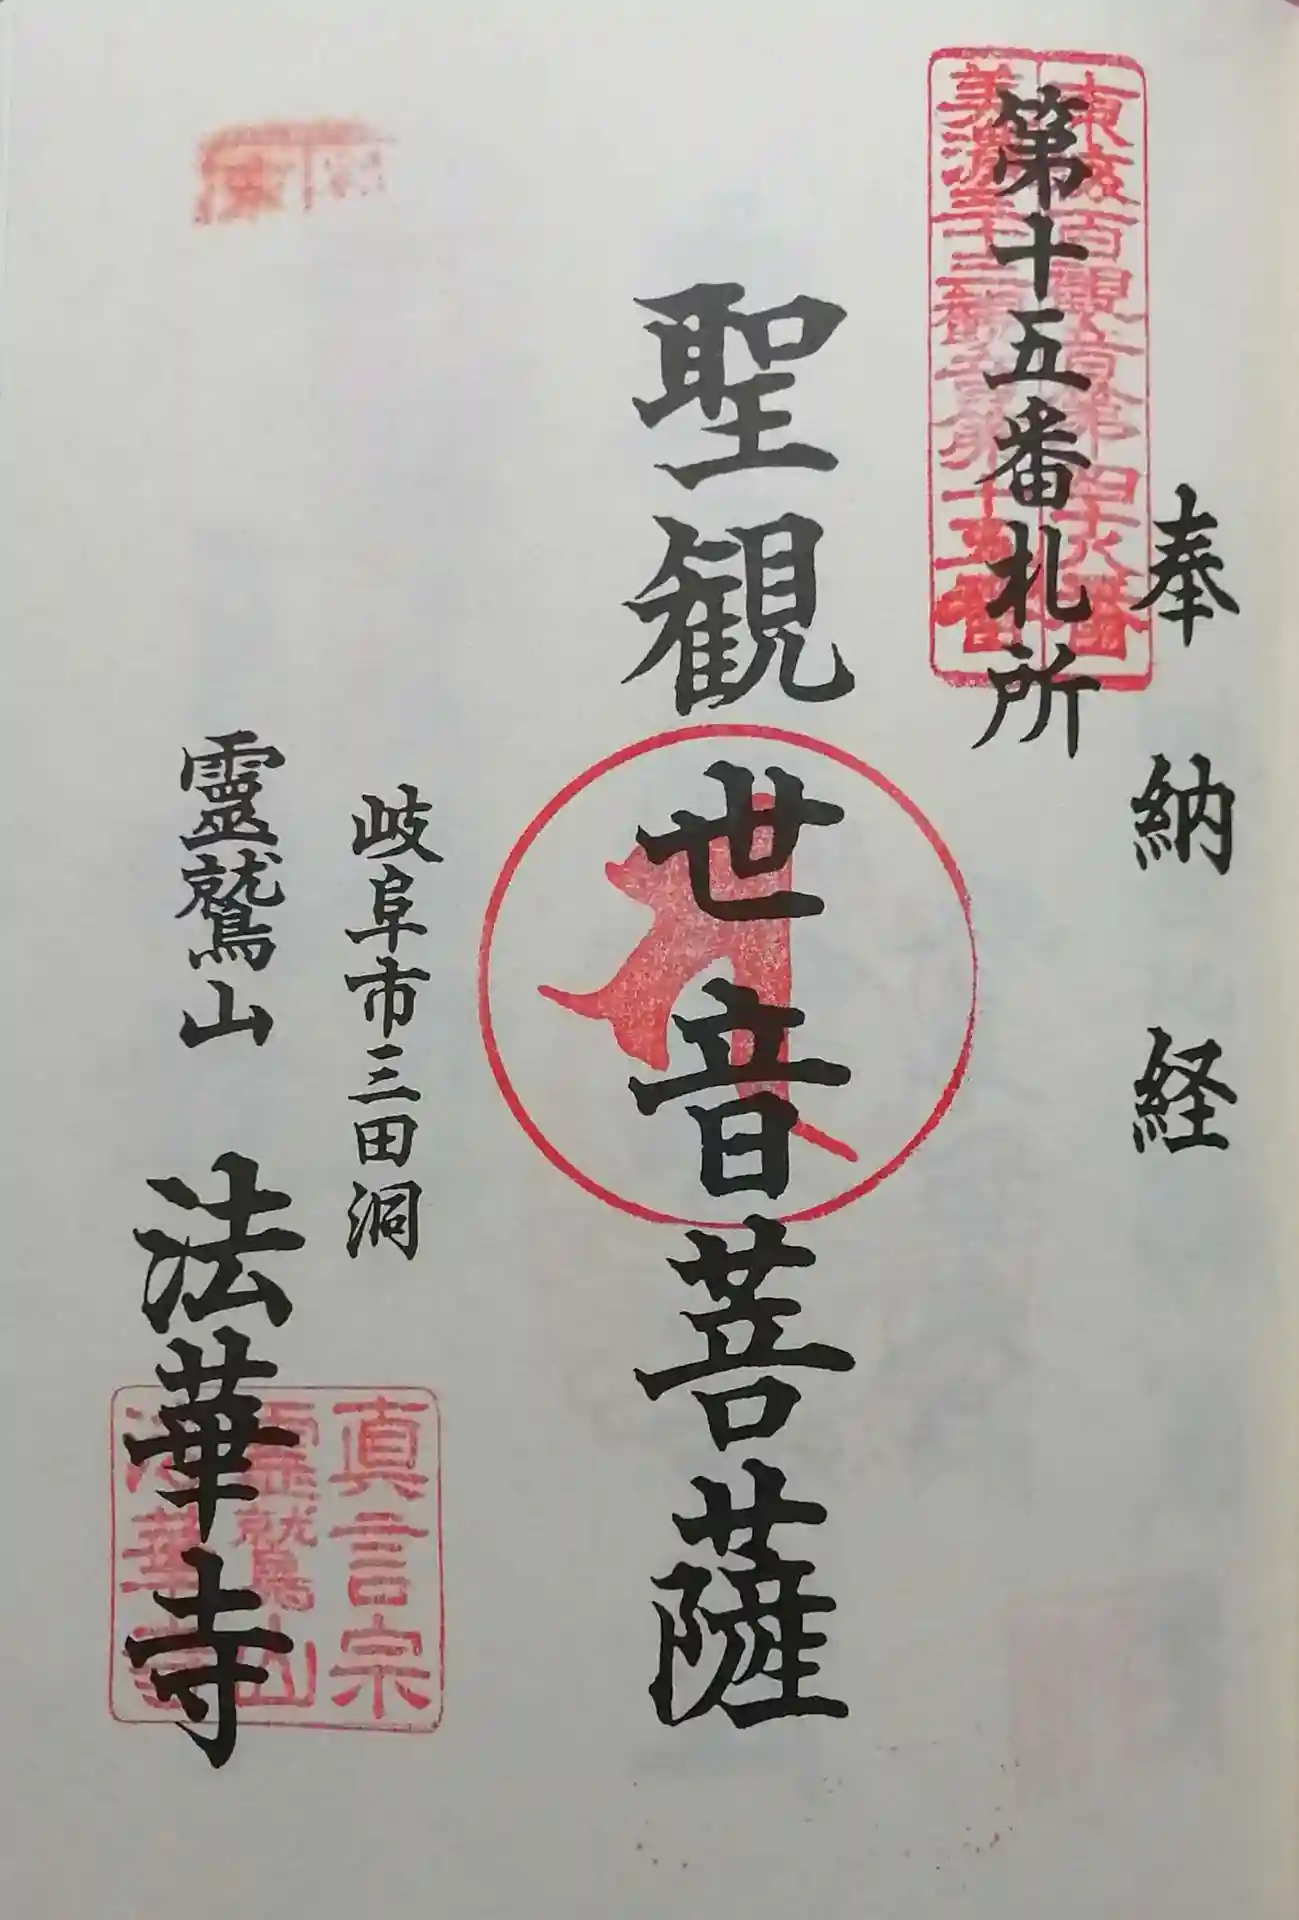 奉納経
東海百観音第四十八番
美濃三十三観音第十五番
第十五番札所
聖観世音菩薩
岐阜市三田洞
靈鷲山 法華寺
真言宗
靈鷲山
法華寺